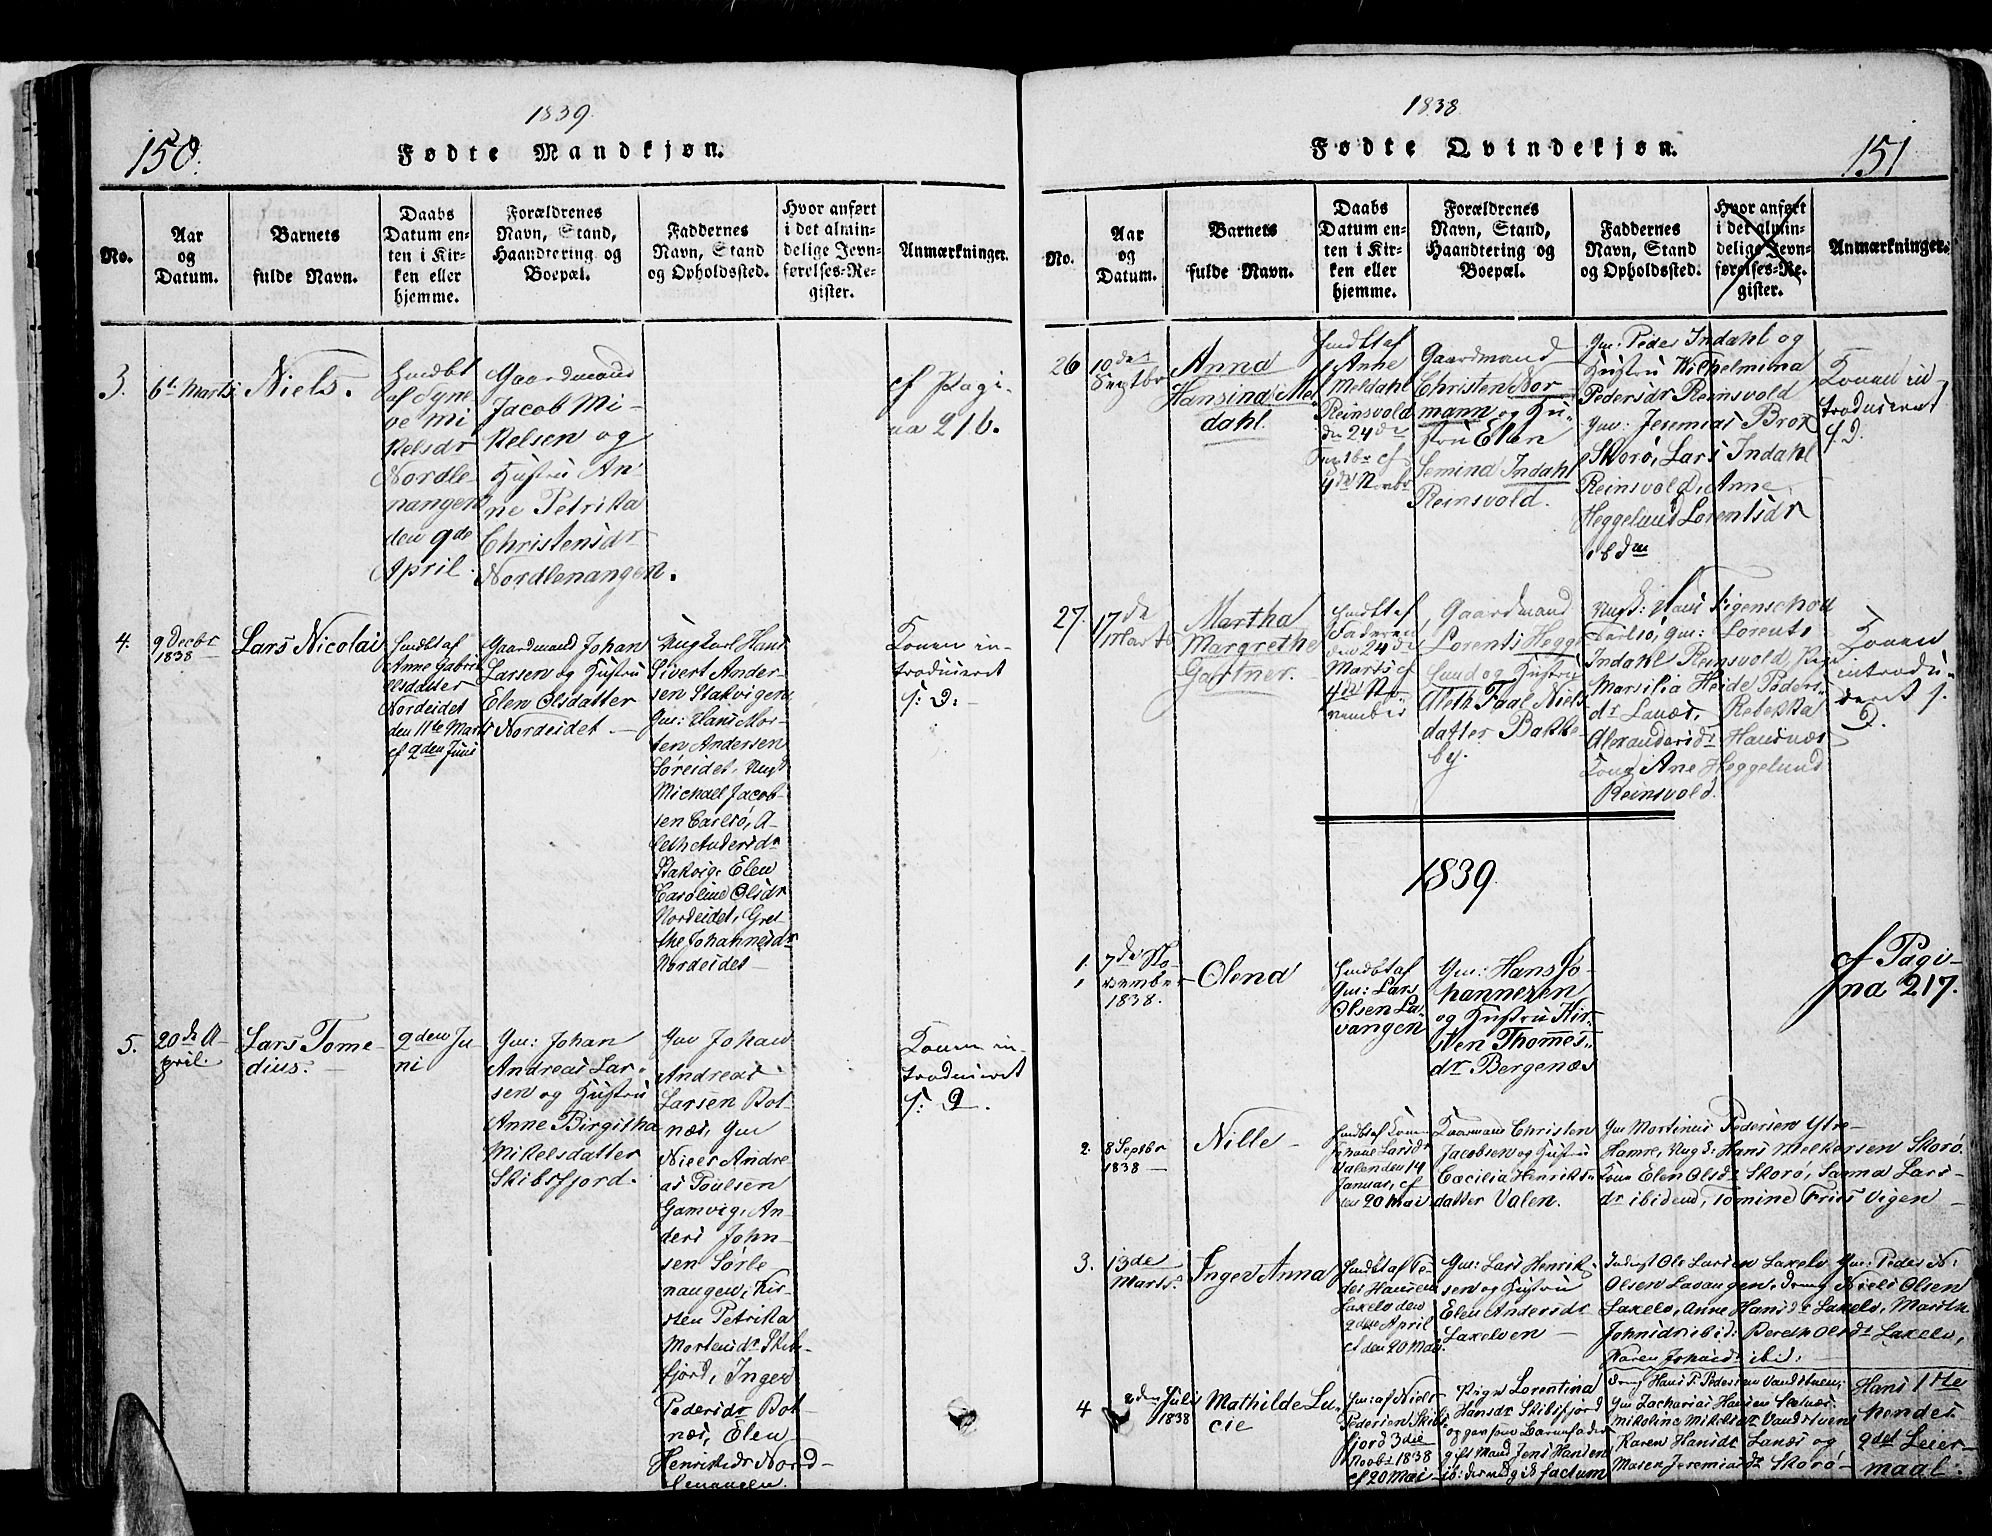 1839.
150.
Fødte Mandkjøn.
No.
Aar
og
Datum.
Barnets
fulde Navn.
Daabs
Datum en-
ten i Kir-
ken eller
hjemme.
Forældrenes
Navn, Stand,
Haandtering og
Boepæl.
Faddernes
Navn, Stand
og Opholdssted.
Hvor anført
i det almin-
delige Jevn-
førelses-Re-
gister.
Anmærkninger.
3.
6t Marts
Niels.
hmdbt
af Syne
ve Mi
kelsdr
Nordle-
nangen
den 9de
April.
Gaardmand
Jacob Mi-
kelsen og
Hustru An-
ne Petrika
Christensdr
Nordlenangen.
cf Pagi-
na 216.
4.
9 Decbr
1838
Lars Nicolai
hmdbt af
Anne Gabri
elsdatter
Nordeidet
den 11te Marts
cf 9den Juni
Gaardmand Johan
Larsen og Hustru
Elen Olsdatter
Nordeidet
Ungkarl Hans
Sivert Ander-
sen Stakvigen
Gm: Hans Mor-
ten Andersen
Søreidet, Ungk
Michael Jacob-
sen Carlsø, A-
leth Andersdr
Stakvig, Elen
Caroline Olsdr
Nordeidet, Gret-
the Johannesdr
Nordeidet
Konen in-
troduceret
s: D:
5.
20de A-
pril.
Lars Tome-
dius.
9den Ju-
ni
Gm: Johan
Andreas Lar-
sen og Hustru
Anne Birgitha
Mikelsdatter
Skibsfjord.
Gm Johan
Andreas
Larsen Bot-
næs, Gm
Nicer Andre-
as Poulsen
Gamvig, An-
ders John-
sen Sørle
nangen, Kir-
sten Petrika
Mortensdr Skibs-
fjord, Inger
Pedersdr Bot-
næs, Elen
Henriksdr Nord-
lenangen.
Konen in-
troduceret
s: D.
1838
151
Fødte Qvindekjøn.
No.
Aar
og
Datum.
Barnets
fulde Navn.
Daabs
Datum en-
ten i Kir-
ken eller
hjemme.
Forældrenes
Navn, Stand,
Haandtering og
Boepæl.
Faddernes
Navn, Stand
og Opholdssted.
Hvor anført
i det almin-
delige Jevn-
førelses-Re-
gister.
Anmærkninger.
26
10de
Septbr
Anna
Hansina Mel
dahl.
hmdbt af
Anne
Meldahl
Reinsvold
den 24de
cf
4de Novbr
Gaardmand
Christen Nor-
mann og Hu-
stru Elen
Semina Indahl
Reinsvold.
Gm: Peder Indahl og
Hustru Wilhelmina
Pedersdr Reinsvold
Gm: Jeremias Brox
Skorø, Lars Indahl
Reinsvold, Anne
Heggelund Lorentsdr
ibdm
Konen in-
troduceret
s. D.
27.
17de
Marts
Martha
Margrethe
Gartner.
hmdbt af
Faderen
den 24de
Marts cf
4de No-
vember
Gaardmand
Lorents Hegge
lund og Hustru
Aleth Faal Niels
datter Bakke
by.
Ungk: Hans Figenschou
Carlsø, Gm: Lorents
Indahl Reinsvold, Pige
Marsilia Heide Peders-
dr Lanæs, Rebekka
Alexandersdr Hansnæs
Kone Ane Heggelund
Reinsvold.
Konen
introdu-
ceret s.
D.
1839
1.
7de No-
vember
1838.
Olena
hmdbt af
Gm: Lars
Olsen La-
vangen
Gm: Hans Jo-
hannesen
og Hustru Kir-
sten Thomes-
dr Bergenæs
cf Pagi-
na 217.
2.
8 Septbr
1838
Nille
hmdbt af Kone
Larsdr
Valen den 14
Januar, cf
den 20 Mai
Gaarmand Christen
Jacobsen og Hustru
Cæcilia Henriks-
datter Valen.
Gm Martinus Pedersen Ytre-
Hamre, Ungk: Hans Melkersen Skorø.
Kone Elen Olsdr Skorø, Sanna Lars-
dr ibidem, Tomine Friis Vigen
3.
13de
Marts
Inger Anna
hmdbt af Pe-
der Hansen
Lakelv den
2den April
cf den 20 Mai
Gm: Lars Henrik-
sen og Hustru
Elen Andersdr
Lakelven
Indigst Ole Larsen Lakelv Gm: Peder N:
Olsen Lavangen, Dreng Niels Olsen
Lakelv, Anne Hansdr Lakelv, Marith
Johnsdr ibid: Bereth Olsdr Lakelv,
Karen Johnsdr ibid:
4
2den Juli
1838
Mathilde Lu-
cie
hm: af Niels
Pedersen Skibs-
fjord 3die
Novbr 1838
cf 20 Mai
Pige Lorentina
Hansdr Skibsfjord
opgav som Barnefader
gift Mand Jens Hansen
ib: factum
Dreng Hans P. Pedersen Vandstuen,
Gm Zacharias Hansen
Mikeline Mikelsdr Vandstuen
Karen Hansdr Lanæs og
Maren Jeremiasdr Skorø
Hans 1ste
hendes
2det Leier-
maal.